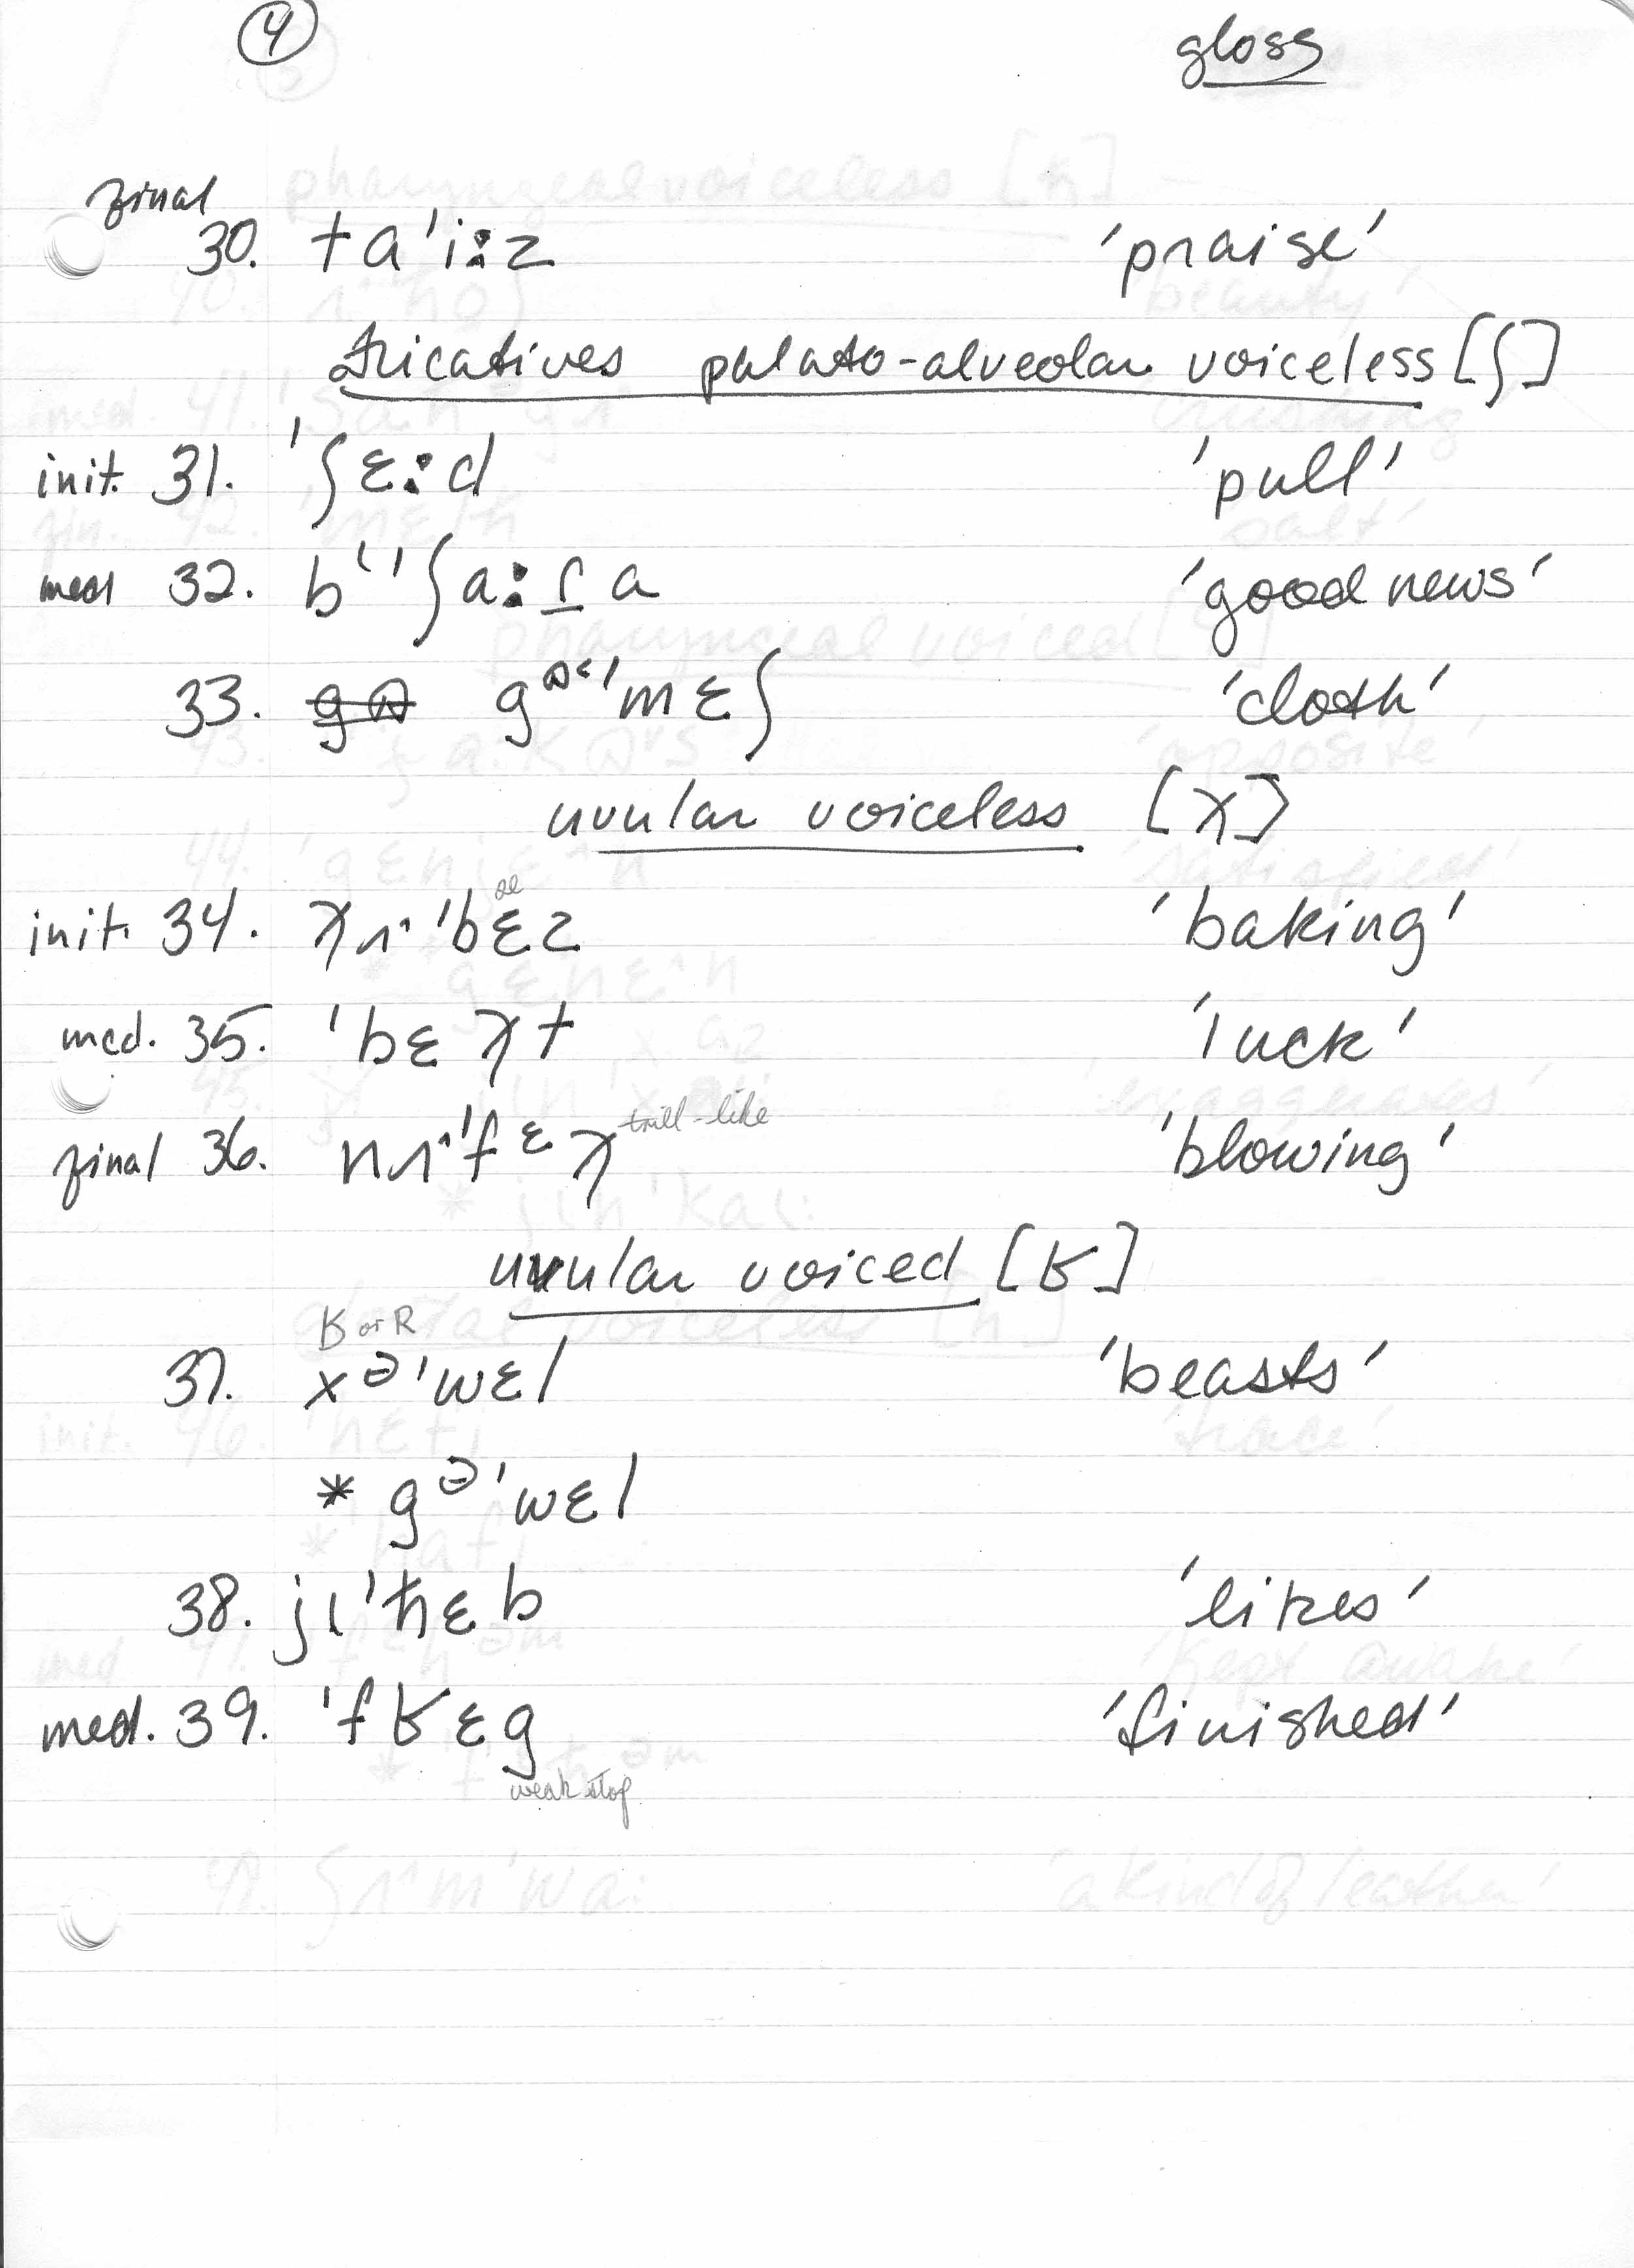 4 gloss
final
30. ta'i:z 'praise'
fricatives palato-alveolar voiceless [ʃ]
init. 31. 'ʃɛ:d 'pull'
med 32. bʿ'ʃa:ɾ̱a 'good news'
33. 'mɛʃ 'cloth'
uvular voiceless [χ]
æ
init. 34. χʌ^'bɛz 'baking'
med. 35. 'bɛχt 'luck'
final 36. nʌ^'fɛχ trill-like 'blowing'
uvular voiced [ʁ]
ʁ or R
37. xə'wɛl 'beasts'
* gə'wɛl
38. jɩ'ħɛb 'likes'
med. 39. 'fʁɛg 'finished'
weak stop